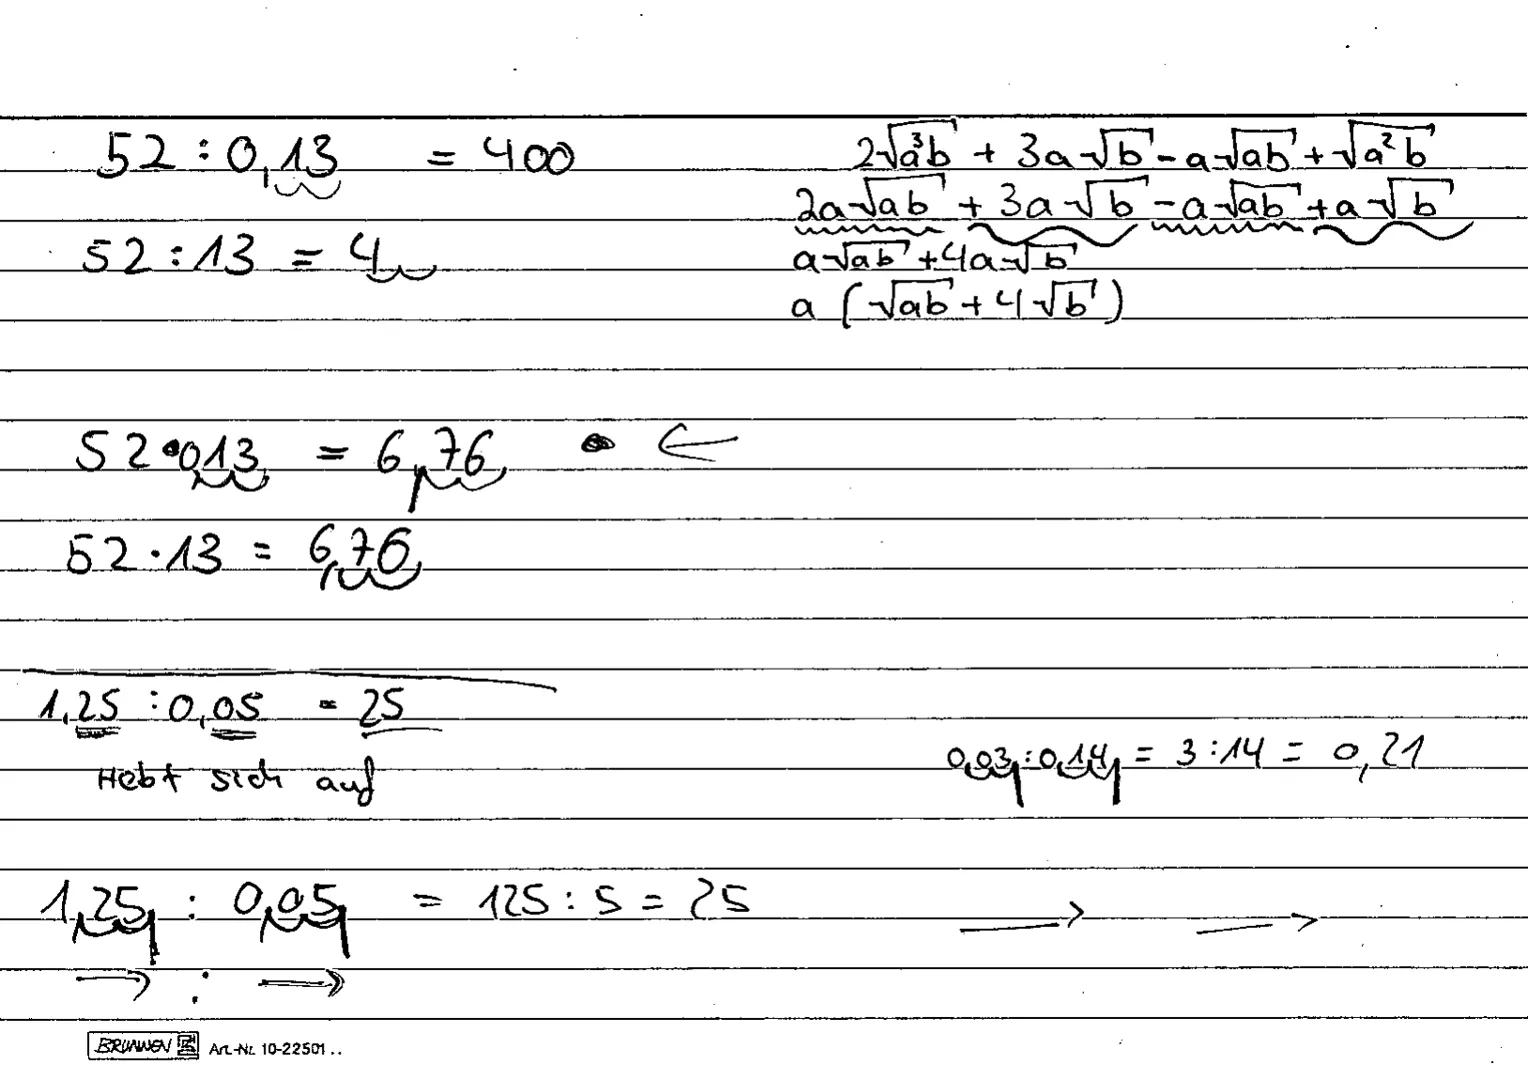 52 : 0,13 = 400
52 : 13 = 4
2√a³b + 3a√b - a√ab + √a²b
2a√ab + 3a√b - a√ab + a√b
a√ab + 4a√b
a (√ab + 4√b)
52 • 0,13 = 6,76 • ←
52 · 13 = 6,76,
1,25 : 0,05 = 25
Hebt sich auf
0,03, : 0,14, = 3 : 14 = 0,21
1,25, : 0,05, = 125 : 5 = 25 → →
→ : →
BRUNNEN Art.-Nr. 10-22501 ..